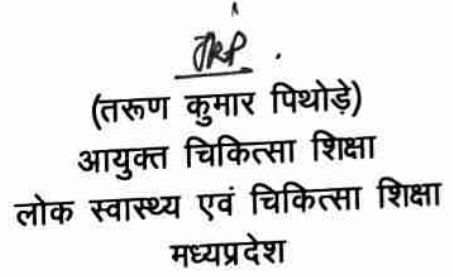 (तरूण कुमार पिथोड़े)
आयुक्त चिकित्सा शिक्षा
लोक स्वास्थ्य एवं चिकित्सा शिक्षा
मध्यप्रदेश